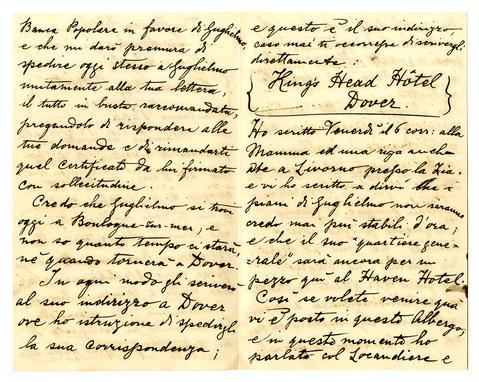 Banca Popolare in favore di Guglielmo,
e che mi darò premura di
spedire oggi stesso a Guglielmo
unitamente alla tua lettera,
il tutto in busta raccomandata,
pregandolo di rispondere alle
tue domande e di rimandarti
quel certificato da lui firmato
con sollecitudine.
Credo che Guglielmo si trovi
oggi a Boulogne-sur-mer, e
non so quanto tempo ci starà,
nè quando tornerà a Dover.
In ogni modo gli scriverò
al suo indirizzo a Dover
ove ho istruzione di spedirgli
la sua corrispondenza;
e questo è il suo indirizzo,
caso mai ti occorresse di scrivergli
direttamente:
King's Head Hôtel
Dover.
Ho scritto Venerdì il 6 corr: alla
Mamma ed una riga anche
a te a Livorno presso la Zia,
e vi ho scritto a dirvi che i
piani di Guglielmo non saranno
credo mai più stabili d'ora;
e che il suo "quartiere gene-
rale" sarà ancora per un
pezzo quì al Haven Hotel.
Così se volete venire quà
vi è posto in questo Albergo,
e in questo momento ho
parlato col Locandiere e